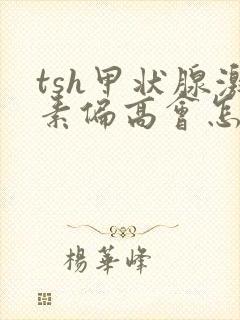 tsh甲状腺激
素偏高會怎
楊華峰